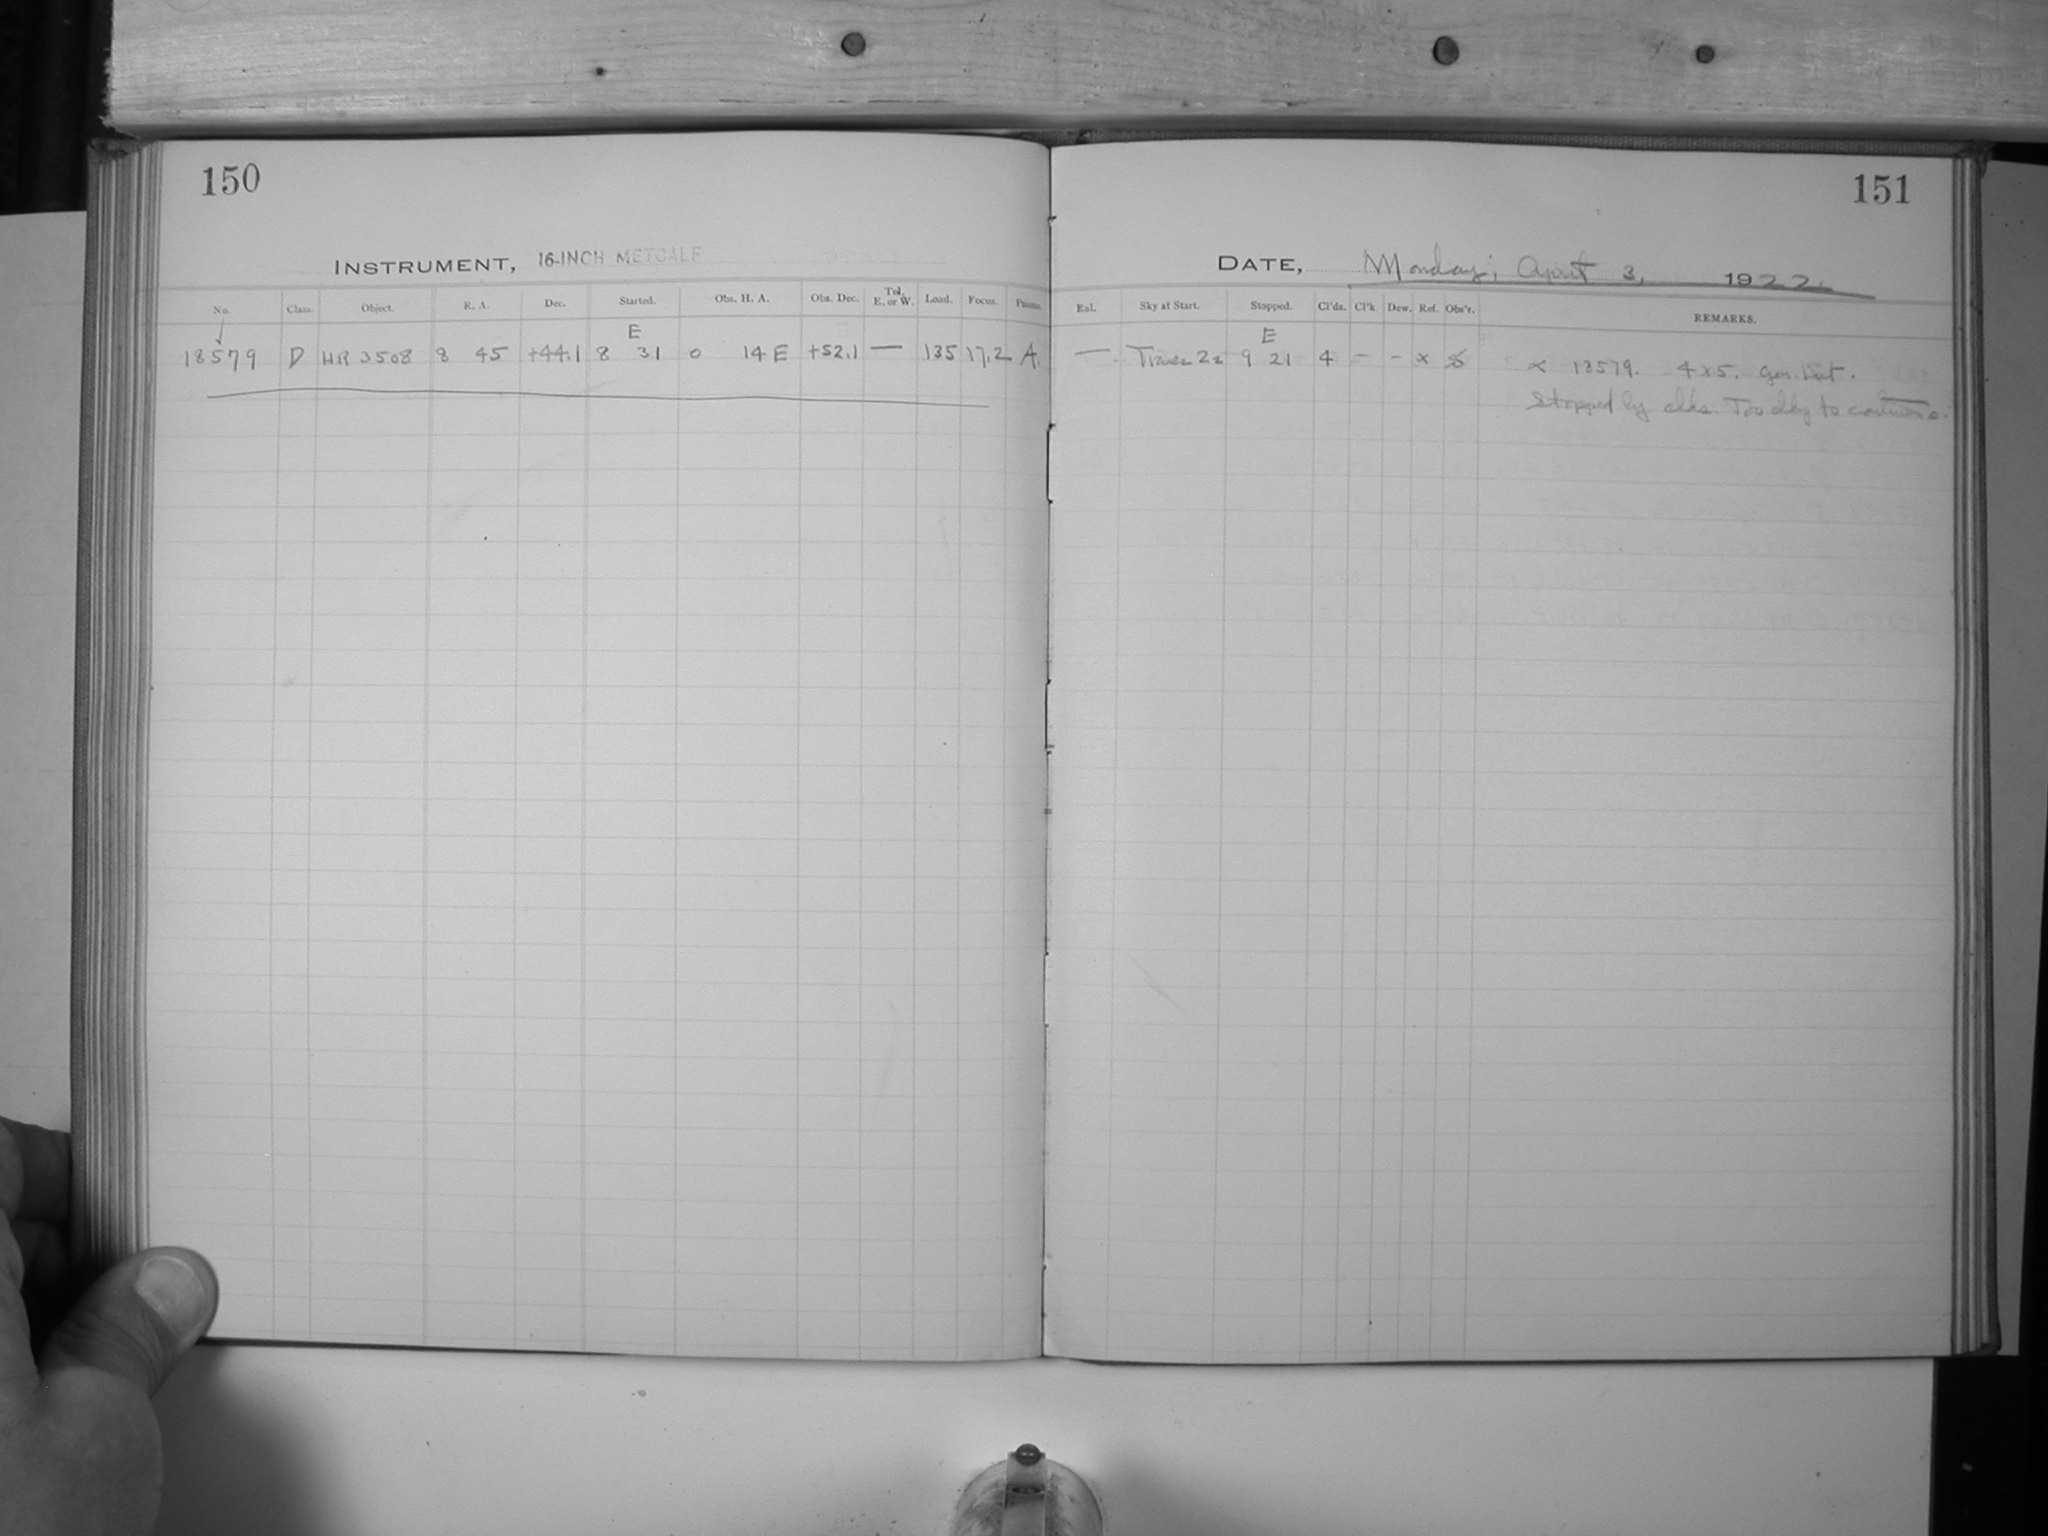 150
INSTRUMENT, 16-INCH METCALF
No. Class. Object. R. A. Dec. Started. Obs. H. A. Obs. Dec. Tel. E. or W. Load. Focus.
E
18579 D HR 3508 8 45 +44.1 8 31 0 14 E +52.1 — 135 17.2 A.
151
DATE, Monday, April 3, 1922.
Eal. Sky at Start. Stopped. Cl'ds. Cl'k. Dew. Ref. Obs'r. REMARKS.
E
— 9 21 4 - - x
18579. 4x5.
Stopped by clds. Too cldy to continue.